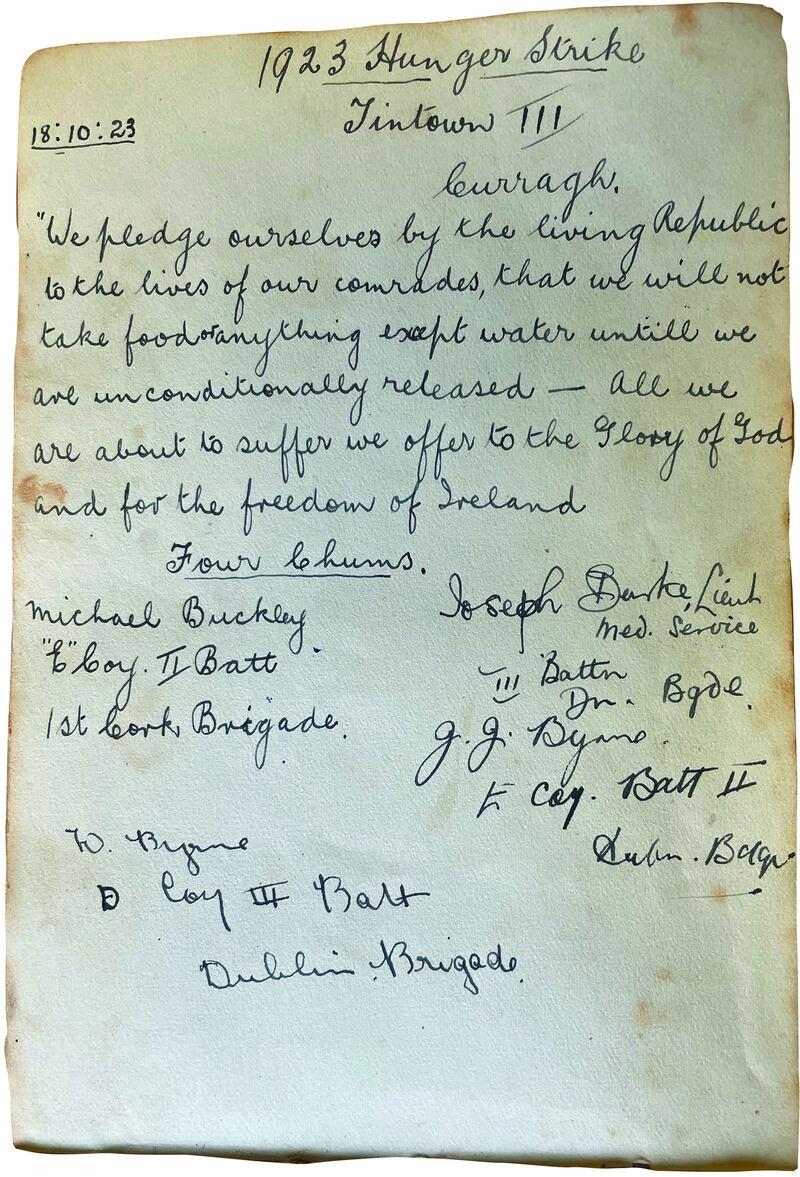 1923 Hunger Strike
18:10:23
Tintown III
Curragh.
"We pledge ourselves by the living Republic
to the lives of our comrades, that we will not
take food or anything except water untill we
are unconditionally released — All we
are about to suffer we offer to the Glory of God
and for the freedom of Ireland
Four Chums.
Michael Buckley
"E" Coy. II Batt
1st Cork Brigade.
Joseph Burke, Lieut
Med. Service
III Battn
Dn. Bgde.
J. J. Byrne.
E Coy. Batt II
Dubn. Bdge.
W. Byrne
D Coy III Batt
Dublin Brigade.